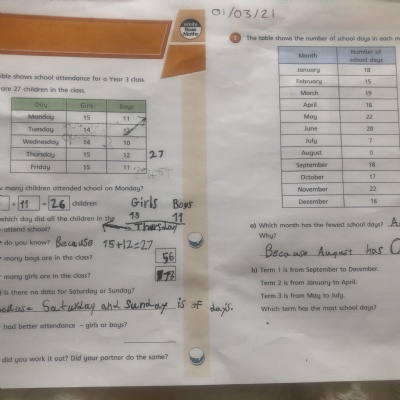 White
Rose
Maths
able shows school attendance for a Year 3 class.
are 27 children in the class.
Day Girls Boys
Monday 15 11
Tuesday 14
Wednesday 14 10
Thursday 15 12
Friday 15 11
27
many children attended school on Monday?
+ 11 = 26 children
Girls Boys
15 11
which day did all the children in the
attend school?
Thursday
do you know? Because 15+12=27
many boys are in the class?
56
many girls are in the class?
is there no data for Saturday or Sunday?
Saturday and Sunday is of day's.
had better attendance – girls or boys?
did you work it out? Did your partner do the same?
01/03/21
The table shows the number of school days in each m
Month Number of school days
January 18
February 15
March 19
April 16
May 22
June 20
July 7
August 0
September 18
October 17
November 22
December 16
a) Which month has the fewest school days? A
Why?
Because August has
b) Term 1 is from September to December.
Term 2 is from January to April.
Term 3 is from May to July.
Which term has the most school days?